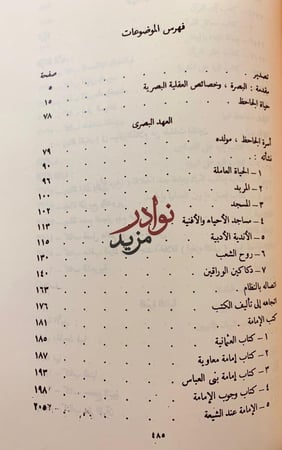 فهرس الموضوعات
صفحة
تصدير . . . . . . . . . ٥
مقدمة : البصرة ، وخصائص العقلية البصرية . . . . ١٥
حياة الجاحظ . . . . . . . . ٧٨
العهد البصرى
أسرة الجاحظ ، مولده . . . . . . . ٧٩
نشأته : . . . . . . . . ٩٠
١ – الحياة العاملة . . . . . . . ٩٦
٢ – المربد . . . . . . . . ١٠٠
٣ – المسجد . . . . . . . . ١٠٢
٤ – مساجد الأحياء والأفنية . . . . . . ١١٣
٥ – الأندية الأدبية . . . . . . . ١١٥
٦ – روح الشعب . . . . . . . ١٣٠
٧ – دكاكين الوراقين . . . . . . . ١٤٠
اتصاله بالنظام . . . . . . . . ١٦٣
اتجاهه إلى تأليف الكتب . . . . . . . ١٧٦
كتب الإمامة . . . . . . . . ١٨١
١ – كتاب العثمانية . . . . . . . ١٨٥
٢ – كتاب إمامة معاوية . . . . . . . ١٨٧
٣ – كتاب إمامة بنى العباس . . . . . . ١٩٣
٤ – كتاب وجوب الإمامة . . . . . . ١٩٨
٥ – الإمامة عند الشيعة . . . . . . ٢٠٥
نوادر
مزيد
٤٨٥